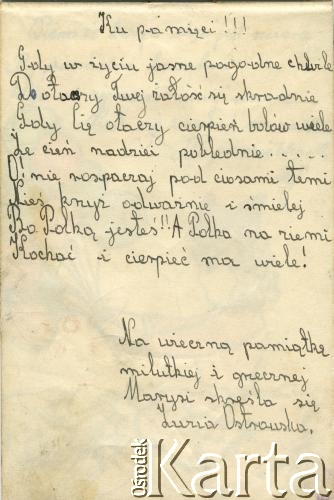 Ku pamięci!!!
Gdy w życiu jasne pogodne chwile
Do otaczy Twej żałość się skradnie
Gdy Cię otaczy cierpień bolów wiele
Że cień nadziei poblednie......
O! nie rospaczaj pod ciosami temi
Nieś krzyż odwarznie i śmielej
Bo Polką jesteś!! A Polka na ziemi
Kochać i cierpieć ma wiele!
Na wieczną pamiątkę
milutkiej i grzecznej
Marysi skręśla się
Ostrowska.
Ośrodek
Karta